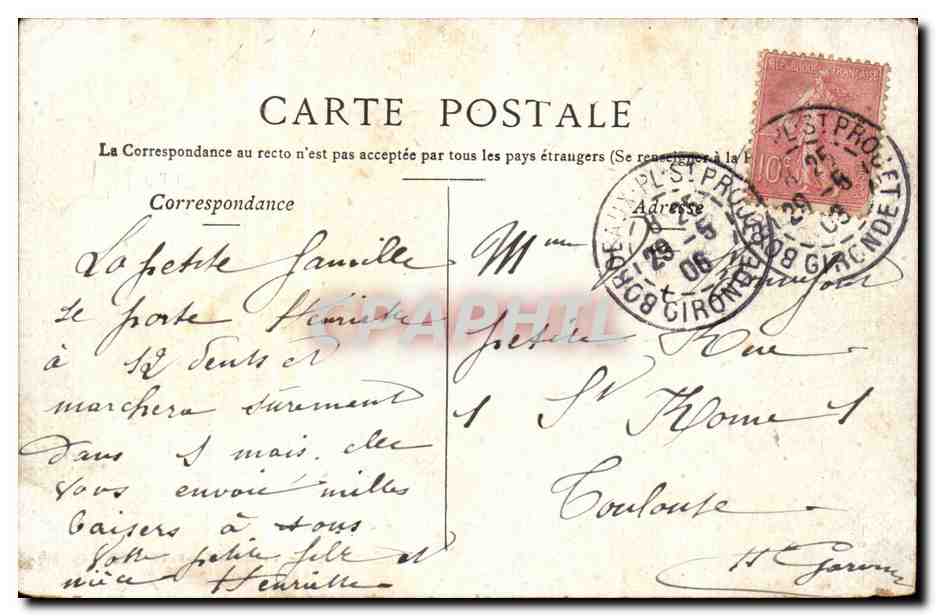 CARTE POSTALE
La Correspondance au recto n'est pas acceptée par tous les pays étrangers (Se renseigner à la
Correspondance
Adresse
La petite famille
se porte Henriette
à 12 dents et
marchera surement
dans 1 mois. elle
vous envoie milles
baisers à tous
Votre petite fille et
nièce Henriette
Mme
petite Rue
1 St Rome 1
Toulouse
Hte Garonne
REPUBLIQUE FRANÇAISE
10
BORDEAUX-PL. ST PROJET
29 -5
06
GIRONDE
PL. ST PROJET
29 -5
GIRONDE
CPAPHIL